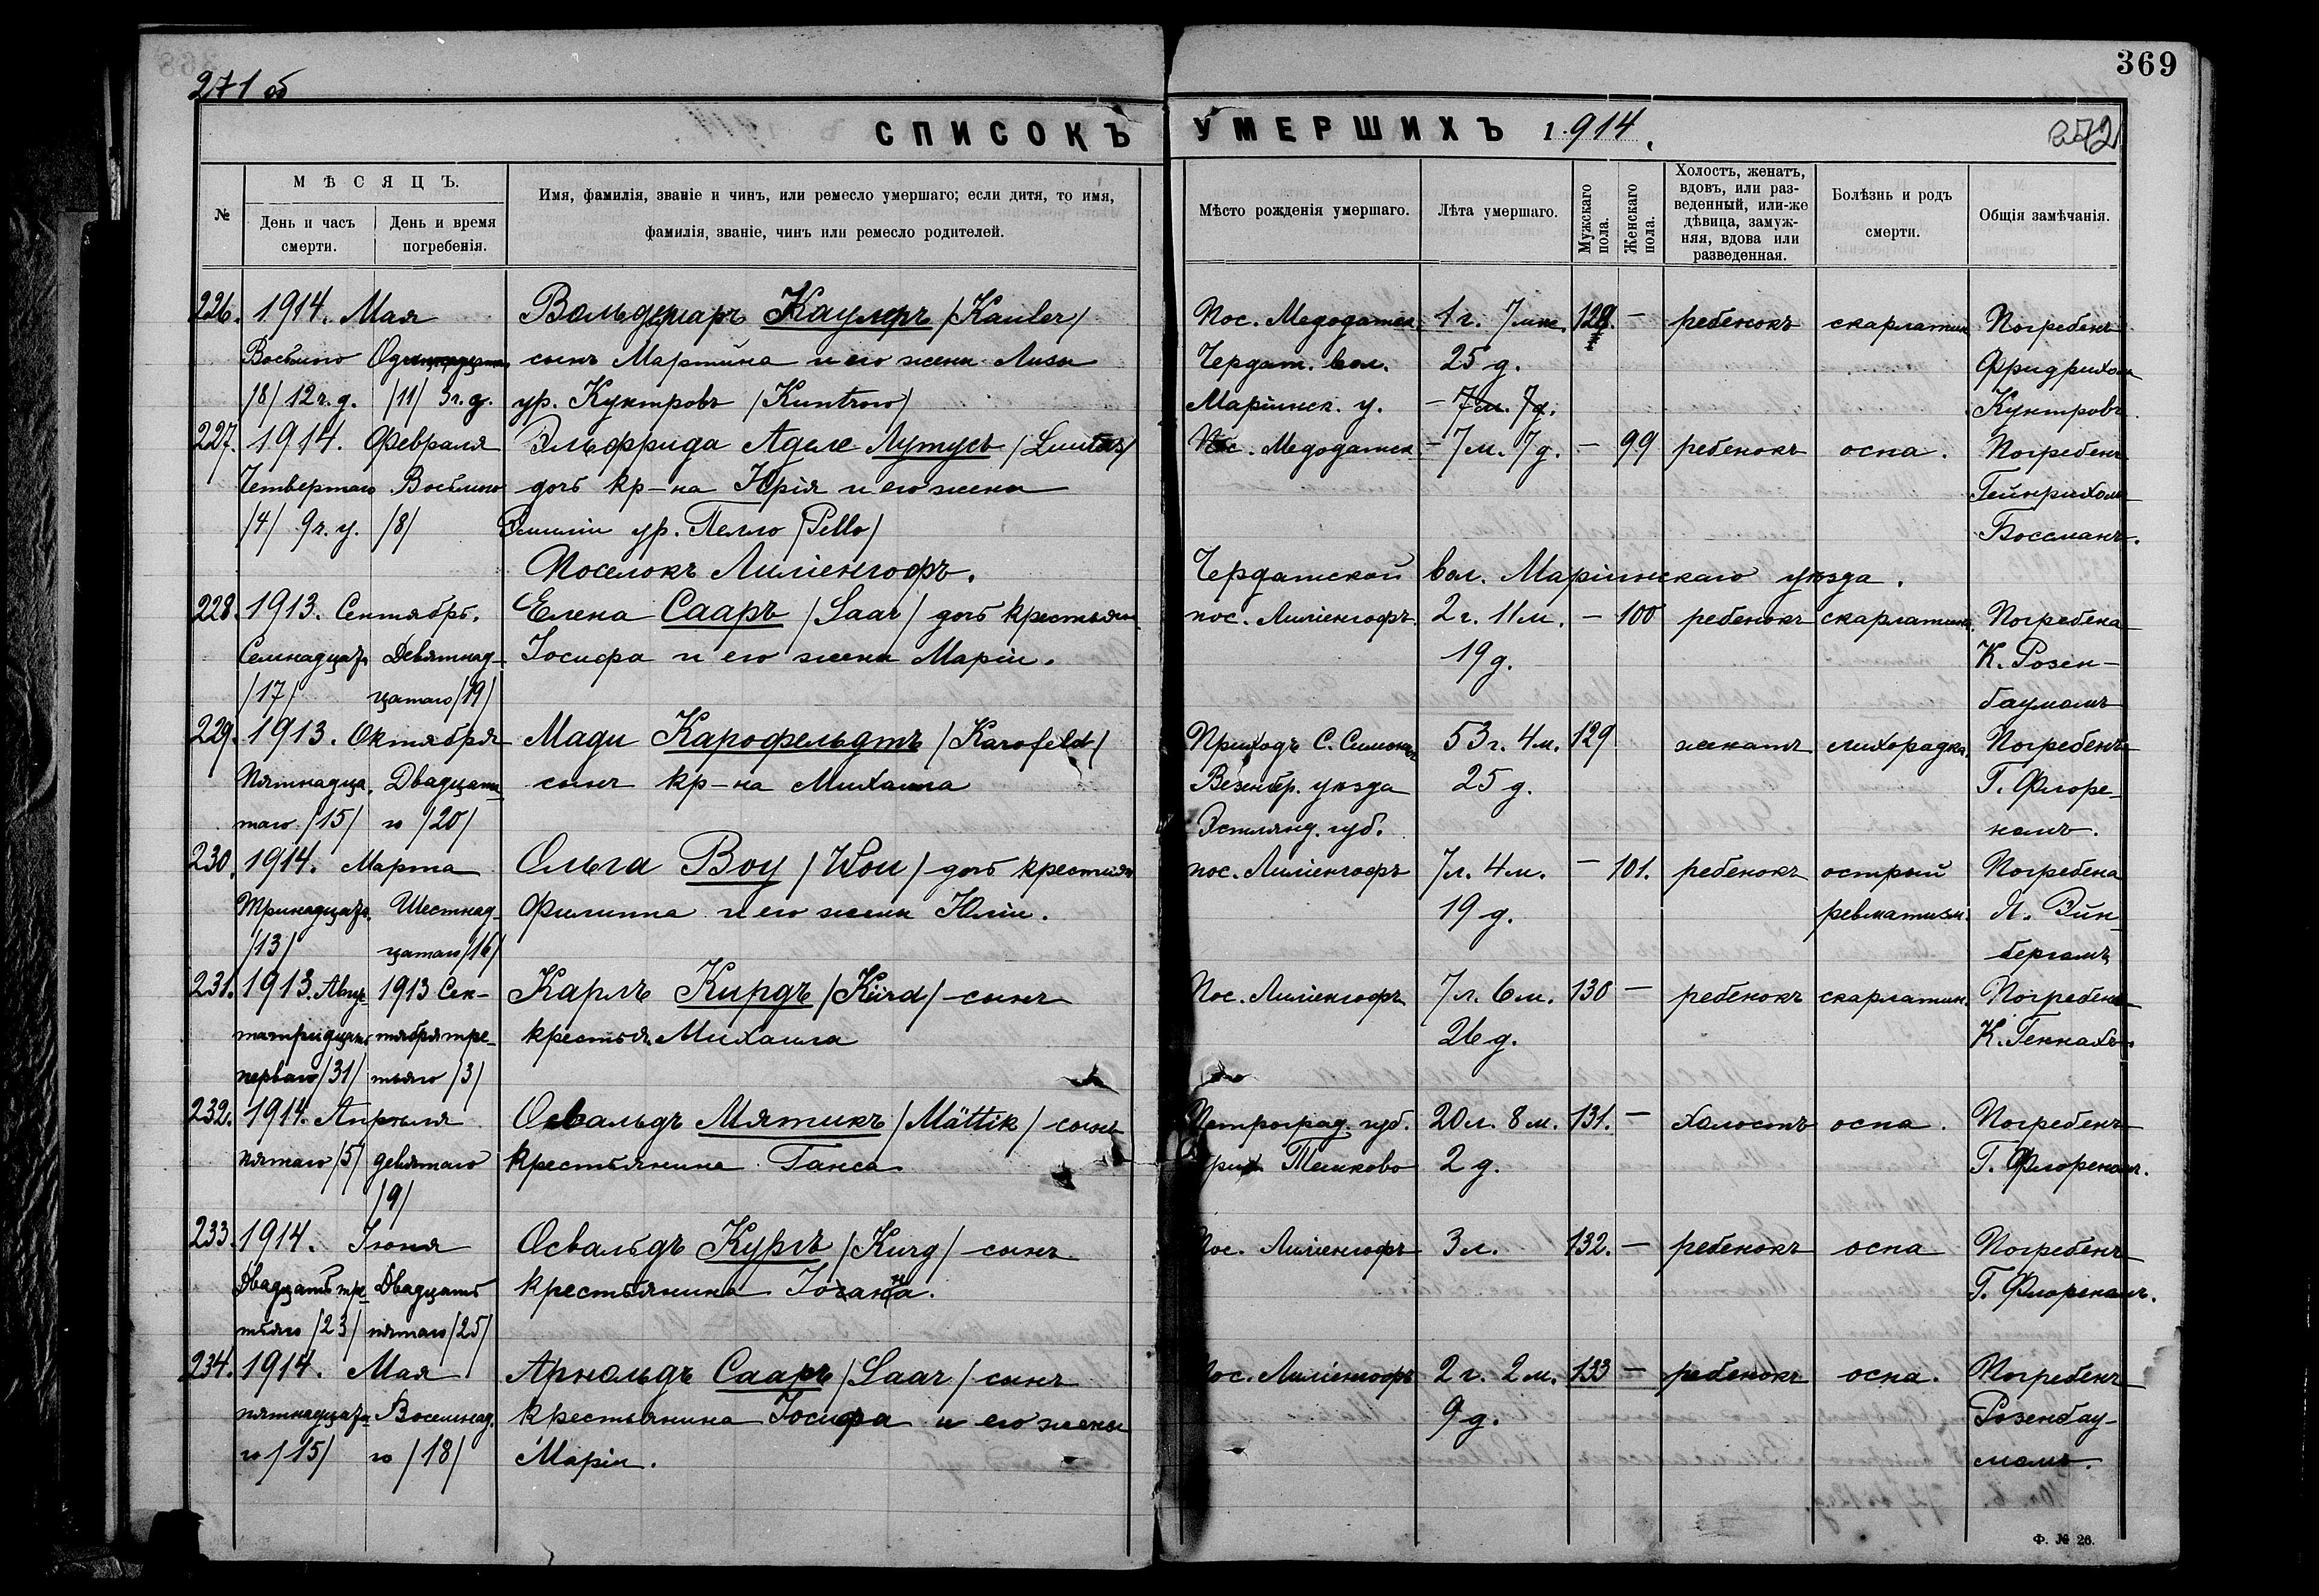 369
271 об
СПИСОКЪ УМЕРШИХЪ 1914.
272
№
МѢСЯЦЪ.
День и часъ смерти.
День и время погребенія.
Имя, фамилія, званіе и чинъ, или ремесло умершаго; если дитя, то имя,
фамилія, званіе, чинъ или ремесло родителей.
Мѣсто рожденія умершаго.
Лѣта умершаго.
Мужскаго пола.
Женскаго пола.
Холостъ, женатъ,
вдовъ, или раз-
веденный, или-же
дѣвица, замуж-
няя, вдова или
разведенная.
Болѣзнь и родъ
смерти.
Общія замѣчанія.
226. 1914. Мая Вольдемаръ Каулеръ /Kauler/ Пос. Медодатск. 1 г. 7 мс. 128. — ребенокъ скарлатин Погребенъ
Восьмого сынъ Мартина и его жены Лизы Чердат. вол. 25 д. Фридрихом
/8/ 12 ч. д. /11/ 3 ч. д. ур. Кунтровъ /Kuntrow/ Маріинск. у. — 7 м. 7 д. Кунтровъ
227. 1914. Февраля Эльфрида Аделе Лутусъ Пос. Медодатск — 7 м. 7 д. — 99 ребенокъ оспа. Погребенъ
Четвертаго Восьмого дочь кр-на Юрія и его жены Гейнрихом
/4/ 9 ч. у. /8/ Эмиліи ур. Пелло /Pello/ Боссманъ.
Поселокъ Лиліенгофъ. Чердатской вол. Маріинскаго уѣзда.
228. 1913. Сентябрь. Елена Сааръ /Saar/ дочь крестьян. пос. Лиліенгофъ. 2 г. 11 м. — 100 ребенокъ скарлатина. Погребена
Семнадцат Девятнад- Іосифа и его жены Маріи. 19 д. К. Розен-
/17/ цатаго /19/ баумомъ
229. 1913. Октября Мади Карофельдтъ /Karofeld/ Приходъ С. Симонъ 53 г. 4 м. 129 женатъ лихорадка. Погребенъ
Пятнадца. Двадцата- сынъ кр-на Михаила Везенбер. уѣзда 25 д. Г. Флоре-
таго /15/ го /20/ Эстлянд. губ. номъ.
230. 1914. Марта Ольга Воу /Wou/ дочь крестьян пос. Лиліенгофъ 7 л. 4 м. — 101. ребенокъ острый Погребена
Тринадцат. Шестнад- Филиппа и его жены Юліи. 19 д. ревматизм. Я. Эйн-
/13/ цатаго /16/ бергомъ
231. 1913. Авгу- 1913 Сен- Карлъ Кирдъ /Kürd/ — сынъ Пос. Лиліенгофъ 7 л. 6 м. 130 — ребенокъ скарлатин. Погребенъ
тятридцат тября тре- крестья. Михаила 26 д. К. Геннахъ.
перваго /31/ тьяго /3/
232. 1914. Апрѣля Освальдъ Мятикъ /Mättik/ — сынъ Петроград. губ. 20 л. 8 м. 131. — холостъ оспа. Погребенъ
пятаго /5/ девятаго крестьянина Ганса прих. Тешково 2 д. Г. Флореномъ.
/9/
233. 1914. Іюня Освальдъ Кургъ /Kurg/ — сынъ Пос. Лиліенгофъ 3 л. 132. — ребенокъ оспа Погребенъ
Двадцать тре- Двадцать крестьянина Іогана. Г. Флореномъ.
тьяго /23/ пятаго /25/
234. 1914. Мая Арнольдъ Сааръ /Saar/ сынъ Пос. Лиліенгофъ 2 г. 2 м. 133 — ребенокъ оспа. Погребенъ
пятнадцата Восемнад. крестьянина Іосифа и его жены 9 д. Розенбау-
го /15/ го /18/ Маріи. момъ.
Ф. № 26.